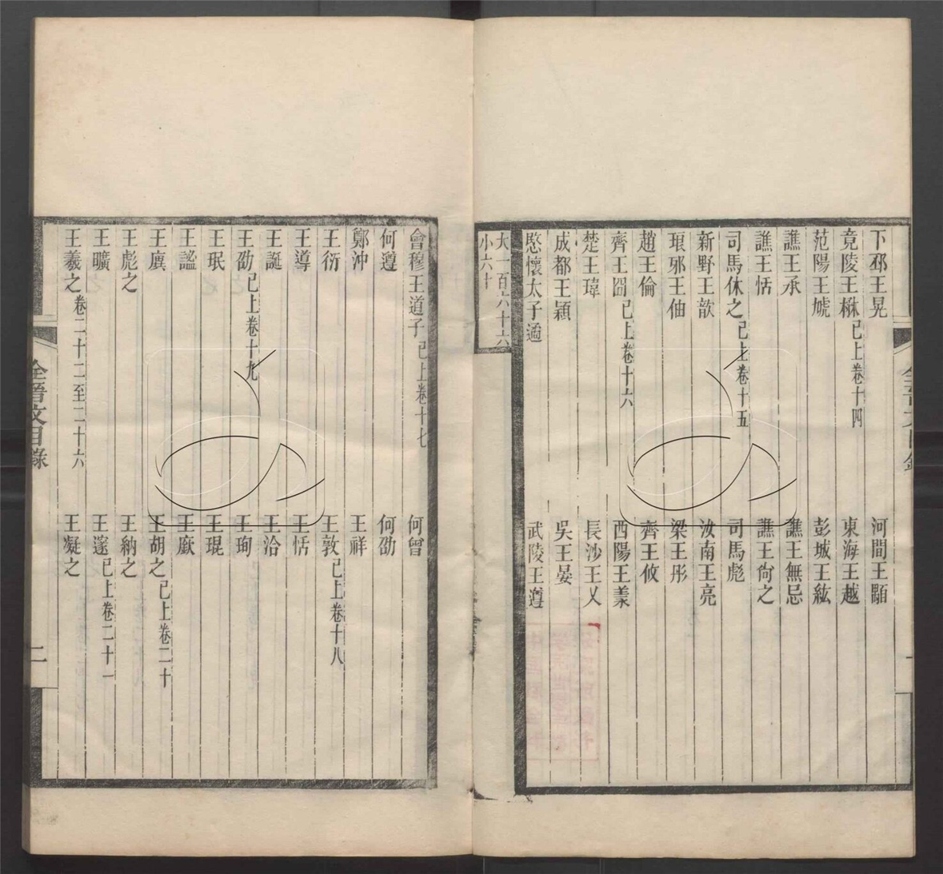 下邳王晃 河間王顒
竟陵王楙 已上卷十四 東海王越
范陽王虓 彭城王紘
譙王承 譙王無忌
譙王恬 譙王尙之
司馬休之 已上卷十五 司馬彪
新野王歆 汝南王亮
琅邪王伷 梁王肜
趙王倫 齊王攸
齊王冏 已上卷十六 西陽王羕
楚王瑋 長沙王乂
成都王穎 吳王晏
愍懷太子遹 武陵王遵
大一百六十六
小六十
會稽王道子 已上卷十七 何曾
何遵 何劭
鄭沖 王祥
王衍 王敦 已上卷十八
王導 王恬
王誕 王洽
王劭 已上卷十九 王珣
王珉 王琨
王謐 王廞
王廙 王胡之 已上卷二十
王彪之 王納之
王曠 王邃 已上卷二十一
王羲之 卷二十二至二十六 王凝之
全晉文目錄
二